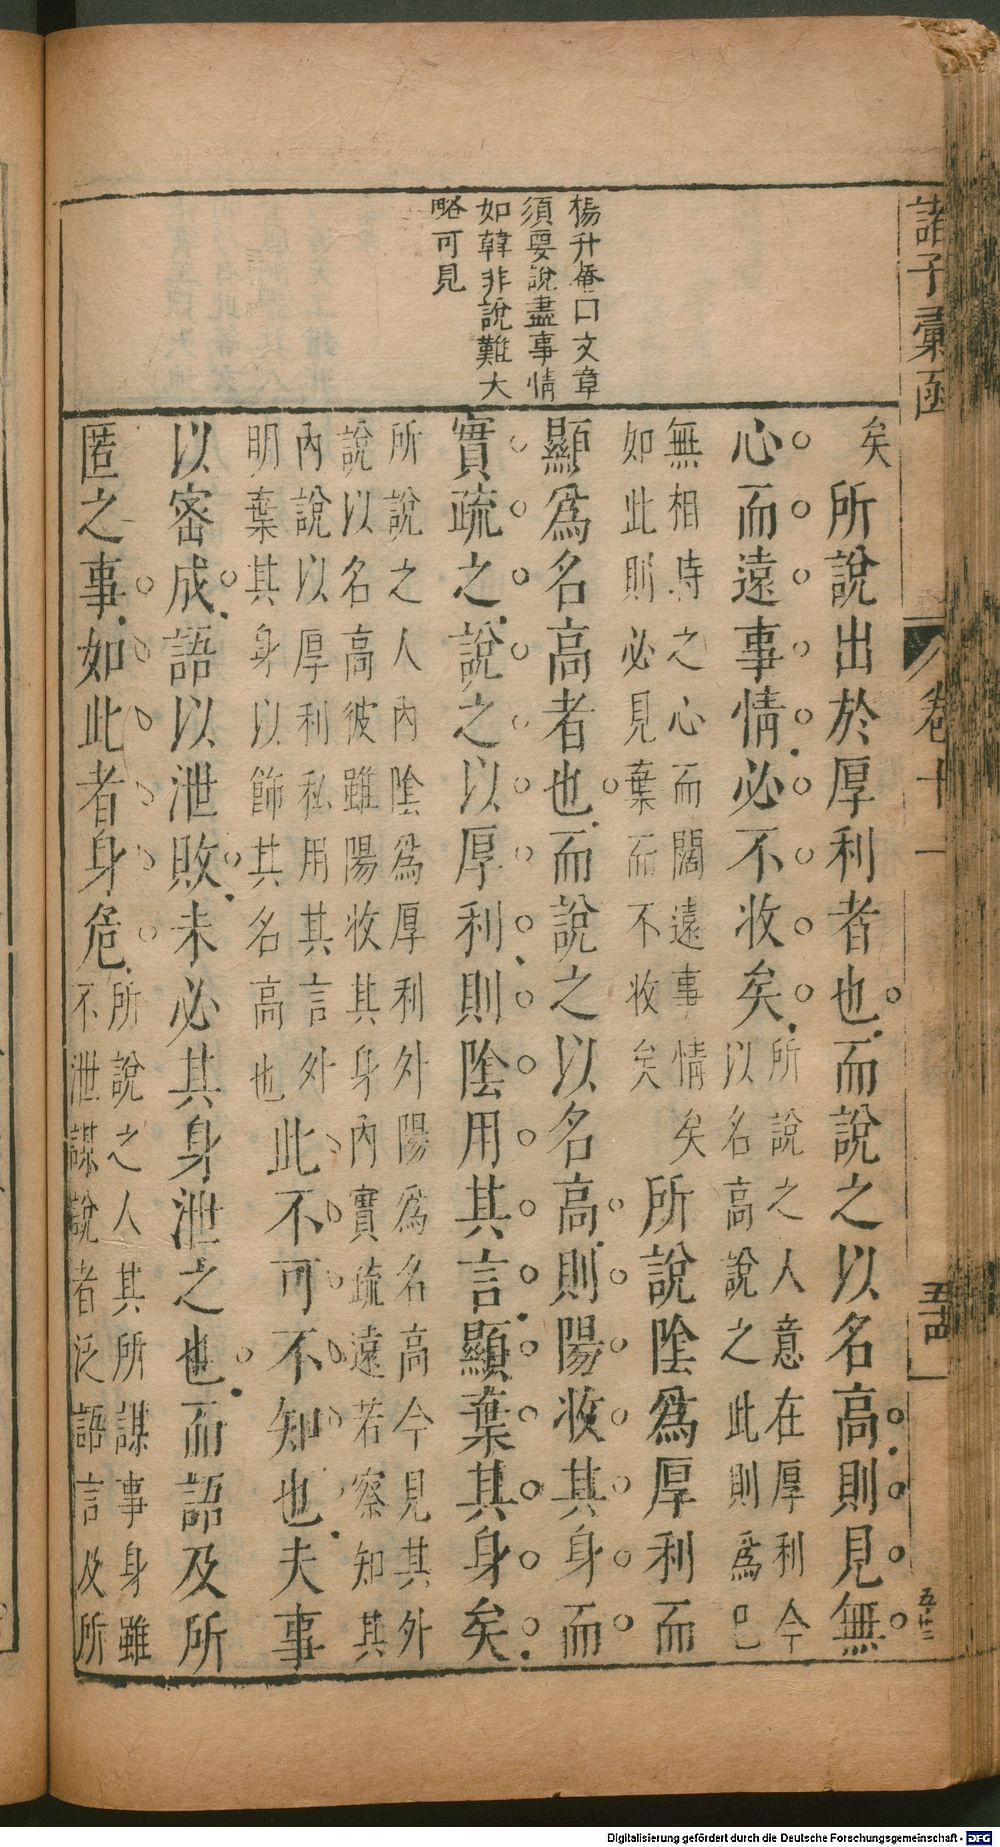 諸子彙函
卷十一
五十四
楊升菴口文章
須要說盡事情
如韓非說難大
略可見
矣
所說出於厚利者也而說之以名高則見無
心而遠事情必不收矣
所說之人意在厚利今
以名高說之此則爲已
無相時之心而闊遠事情矣
如此則必見棄而不收矣
所說陰爲厚利而
顯爲名高者也而說之以名高則陽收其身而
實疏之說之以厚利則陰用其言顯棄其身矣
所說之人內陰爲厚利外陽爲名高今見其外
說以名高彼雖陽收其身內實疏遠若察知其
內說以厚利私用其言外
明棄其身以飾其名高也
此不可不知也夫事
以密成語以泄敗未必其身泄之也而語及所
匿之事如此者身危
所說之人其所謀事身雖
不泄謀說者泛語言及所
Digitalisierung gefördert durch die Deutsche Forschungsgemeinschaft - DFG